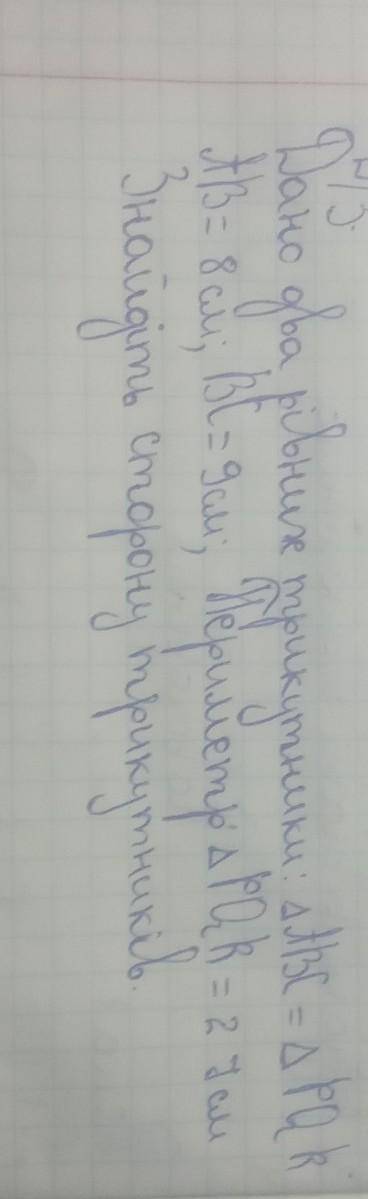 Д/З.
Дано два рівних трикутники: △ABC = △PQR
AB = 8 см; BC = 9 см; Периметр △PQR = 27 см
Знайдіть сторону трикутників.